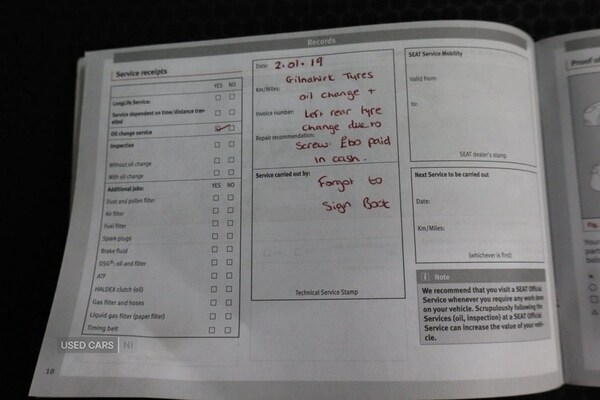 Records
Service receipts
YES NO
LongLife Service:
Service dependent on time/distance trav-
elled
Oil change service
Inspection
Without oil change
With oil change
Additional jobs: YES NO
Dust and pollen filter
Air filter
Fuel filter
Spark plugs
Brake fluid
DSG®: oil and filter
ATF
HALDEX clutch (oil)
Gas filter and hoses
Liquid gas filter (paper filter)
Timing belt
10
Date: 2.01.19
Gilnahirk Tyres
Km/Miles:
oil change +
Invoice number: Left rear tyre
change due to
Repair recommendation:
Screw. £60 paid
in cash.
Service carried out by: Forgot to
Sign Book
Technical Service Stamp
SEAT Service Mobility
Valid from:
to:
SEAT dealer's stamp
Next Service to be carried out
Date:
Km/Miles:
(whichever is first)
i Note
We recommend that you visit a SEAT Official
Service whenever you require any work done
on your vehicle. Scrupulously following the
Services (oil, inspection) at a SEAT Official
Service can increase the value of your vehi-
cle.
Proof of
Fig.
Your
part
belo
USED CARS NI